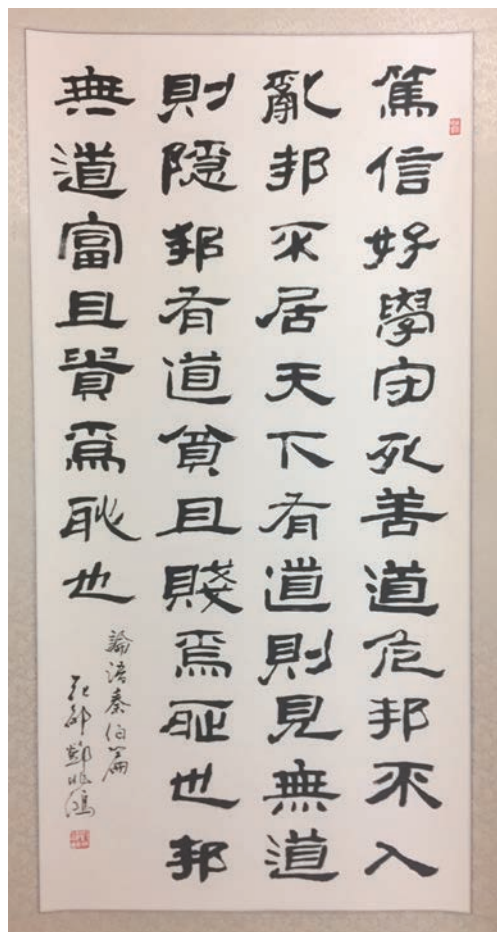 篤信好學守死善道危邦不入
亂邦不居天下有道則見無道
則隱邦有道貧且賤焉恥也邦
無道富且貴焉耻也
論語泰伯篇